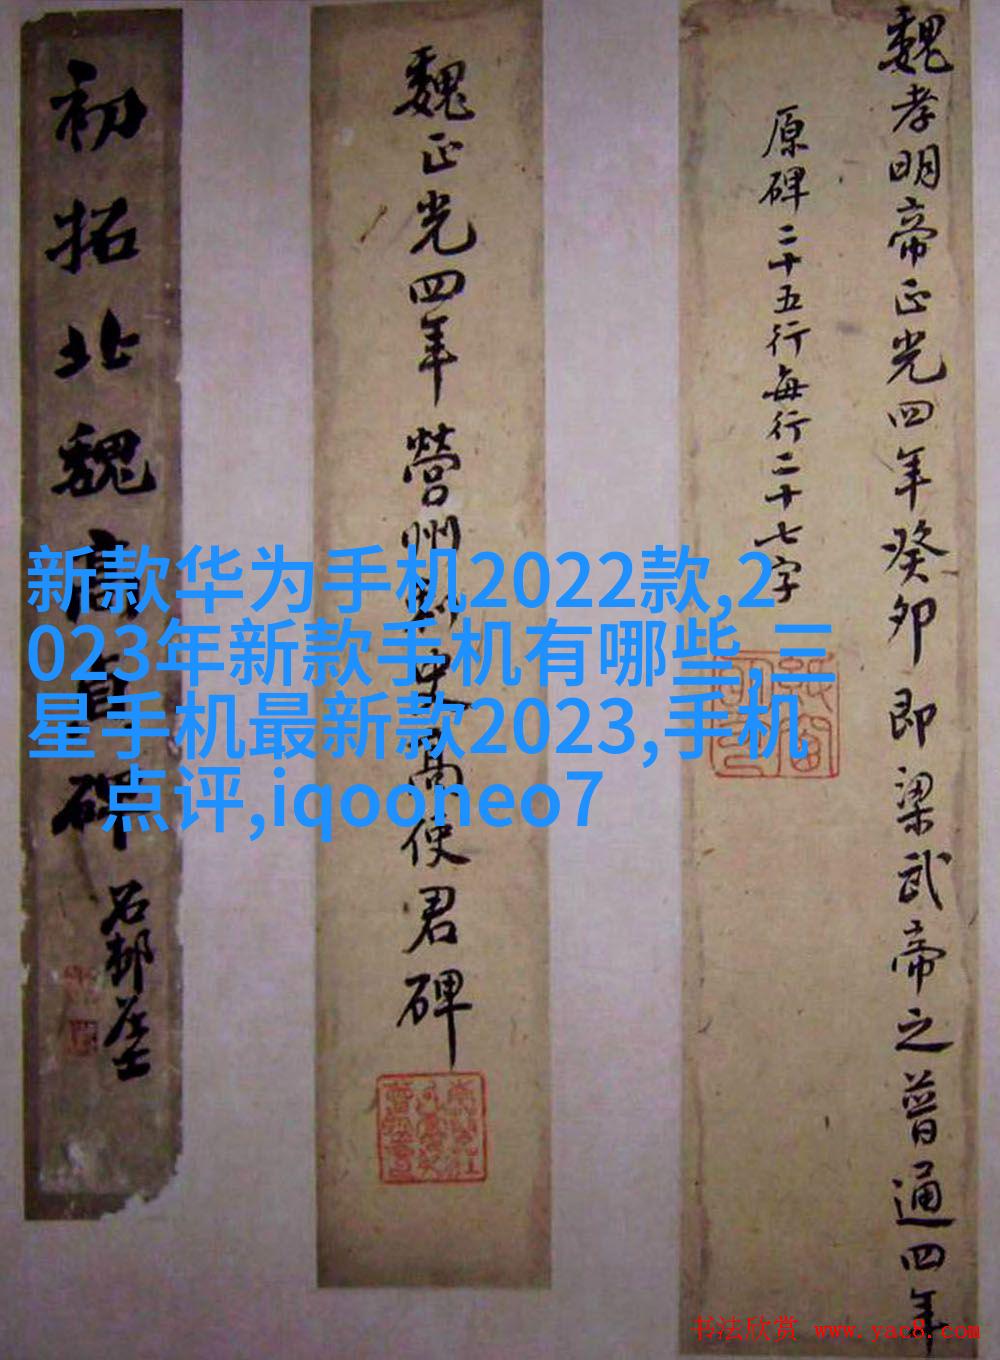 魏孝明帝正光四年癸卯即梁武帝之普通四年
原碑二十五行每行二十七字
魏正光四年營州刺史高使君碑
初拓北魏高貞碑
石邨居士
新款华为手机2022款,2
023年新款手机有哪些,三
星手机最新款2023,手机
点评,iqooneo7
书法欣赏 www.yac8.com